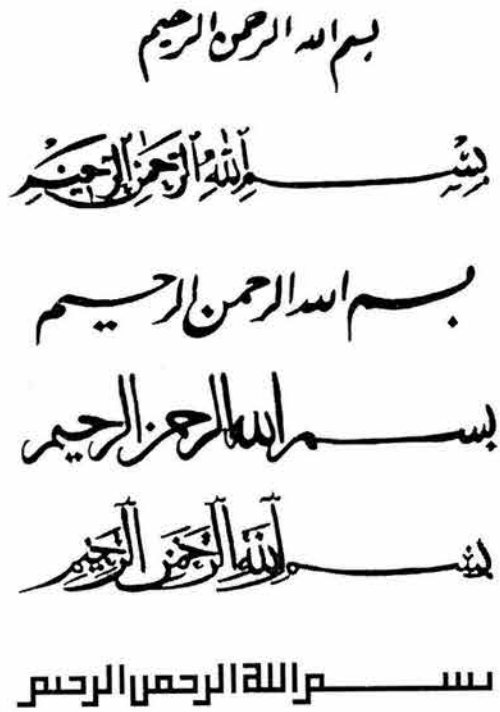 بسم الله الرحمن الرحيم
بِسْمِ اللهِ الرَّحْمٰنِ الرَّحِيْمِ
بسم الله الرحمن الرحيم
بسم الله الرحمن الرحيم
بِسْمِ اللهِ الرَّحْمٰنِ الرَّحِيْمِ
بسم الله الرحمن الرحيم